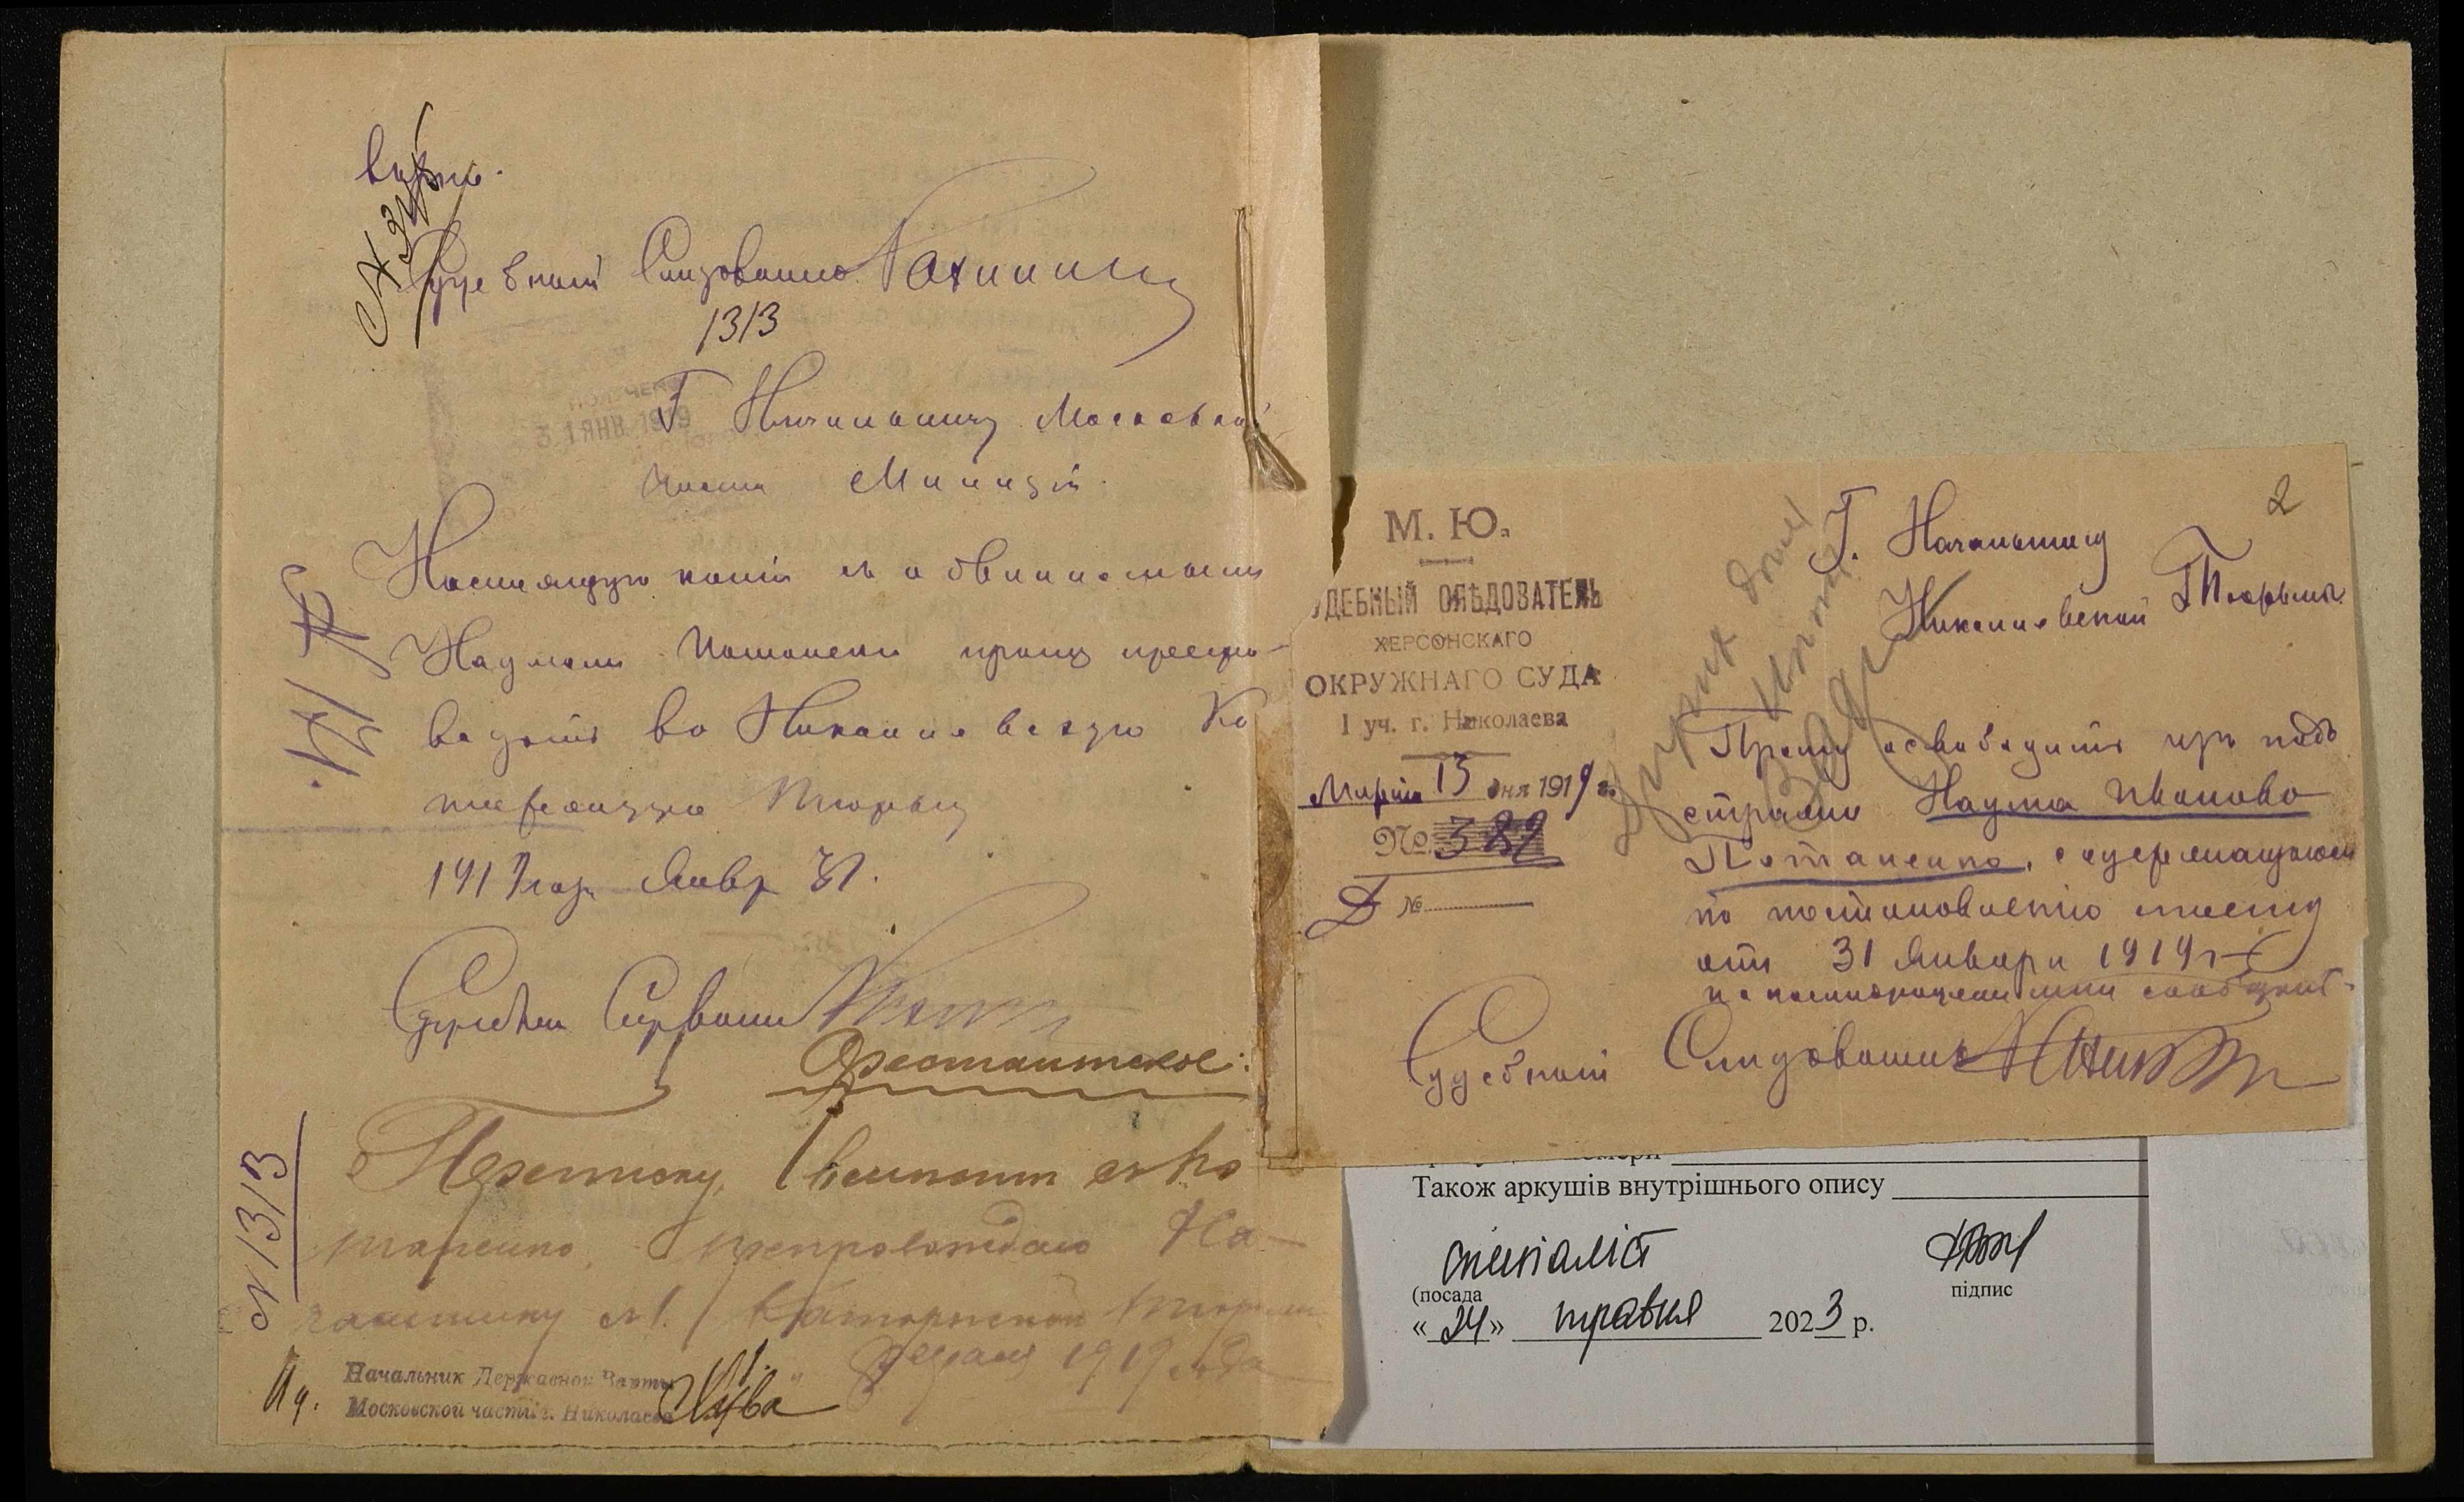 Вѣрно.
Судебный Слѣдователь
1313
ПОЛУЧЕНО
31 ЯНВ 1919
Г. Начальнику Московской
части Милиціи.
Настоящую копію съ обвиняемымъ
Наумомъ Потапенко прошу препро-
водить во Николаевскую Ка
торжную Тюрьму
1919 года Январ 31.
Судебный Слѣдователь
Арестантское:
Переписку, съ По
тапенко, препровождаю На-
чальнику Каторжной Тюрьмы
Февраля 1919 года
№ 1313
И д. Начальник Державной Варты
Московской части г. Николаева
2
М. Ю.
СУДЕБНЫЙ СЛѢДОВАТЕЛЬ
ХЕРСОНСКАГО
ОКРУЖНАГО СУДА
I уч. г. Николаева
Марта 15 дня 1919 г.
№ 389
№
Г. Начальнику
Николаевской Тюрьмы.
Прошу освободить изъ подъ
стражи Наума Иванова
Потапенко, содержащагося
по постановленію моему
отъ 31 Января 1919 г.
и о послѣдующемъ мнѣ сообщить.
Судебный Слѣдователь
Також аркушів внутрішнього опису
спеціаліст
(посада
підпис
« 24 » травня 2023 р.